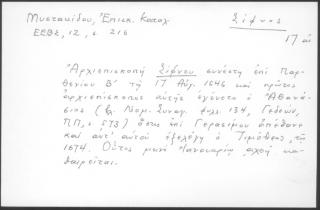 Μυστακίδου, Ἐπισκ. Καταλ.
Σίφνος
ΕΕΒΣ, 12, σ. 216
17 αἰ
Ἀρχιεπισκοπὴ Σίφνου συνέστη ἐπὶ Παρ-
θενίου Β΄ τῇ 17 Αὐγ. 1646 καὶ πρῶτος
ἀρχιεπίσκοπος αὐτῆς ἐγένετο ὁ Ἀθανά-
σιος (βλ. Νομ. Συναγ. φυλ. 134, Γεδεών,
ΠΠ, σ. 573) ὅστις ἐπὶ Γερασίμου ἀπέθανε
καὶ ἀντ' αὐτοῦ ἐξελέγη ὁ Τιμόθεος, τῇ
1674. Οὗτος μηνὶ Ἰανουαρίῳ κα-
θαιρεῖται.